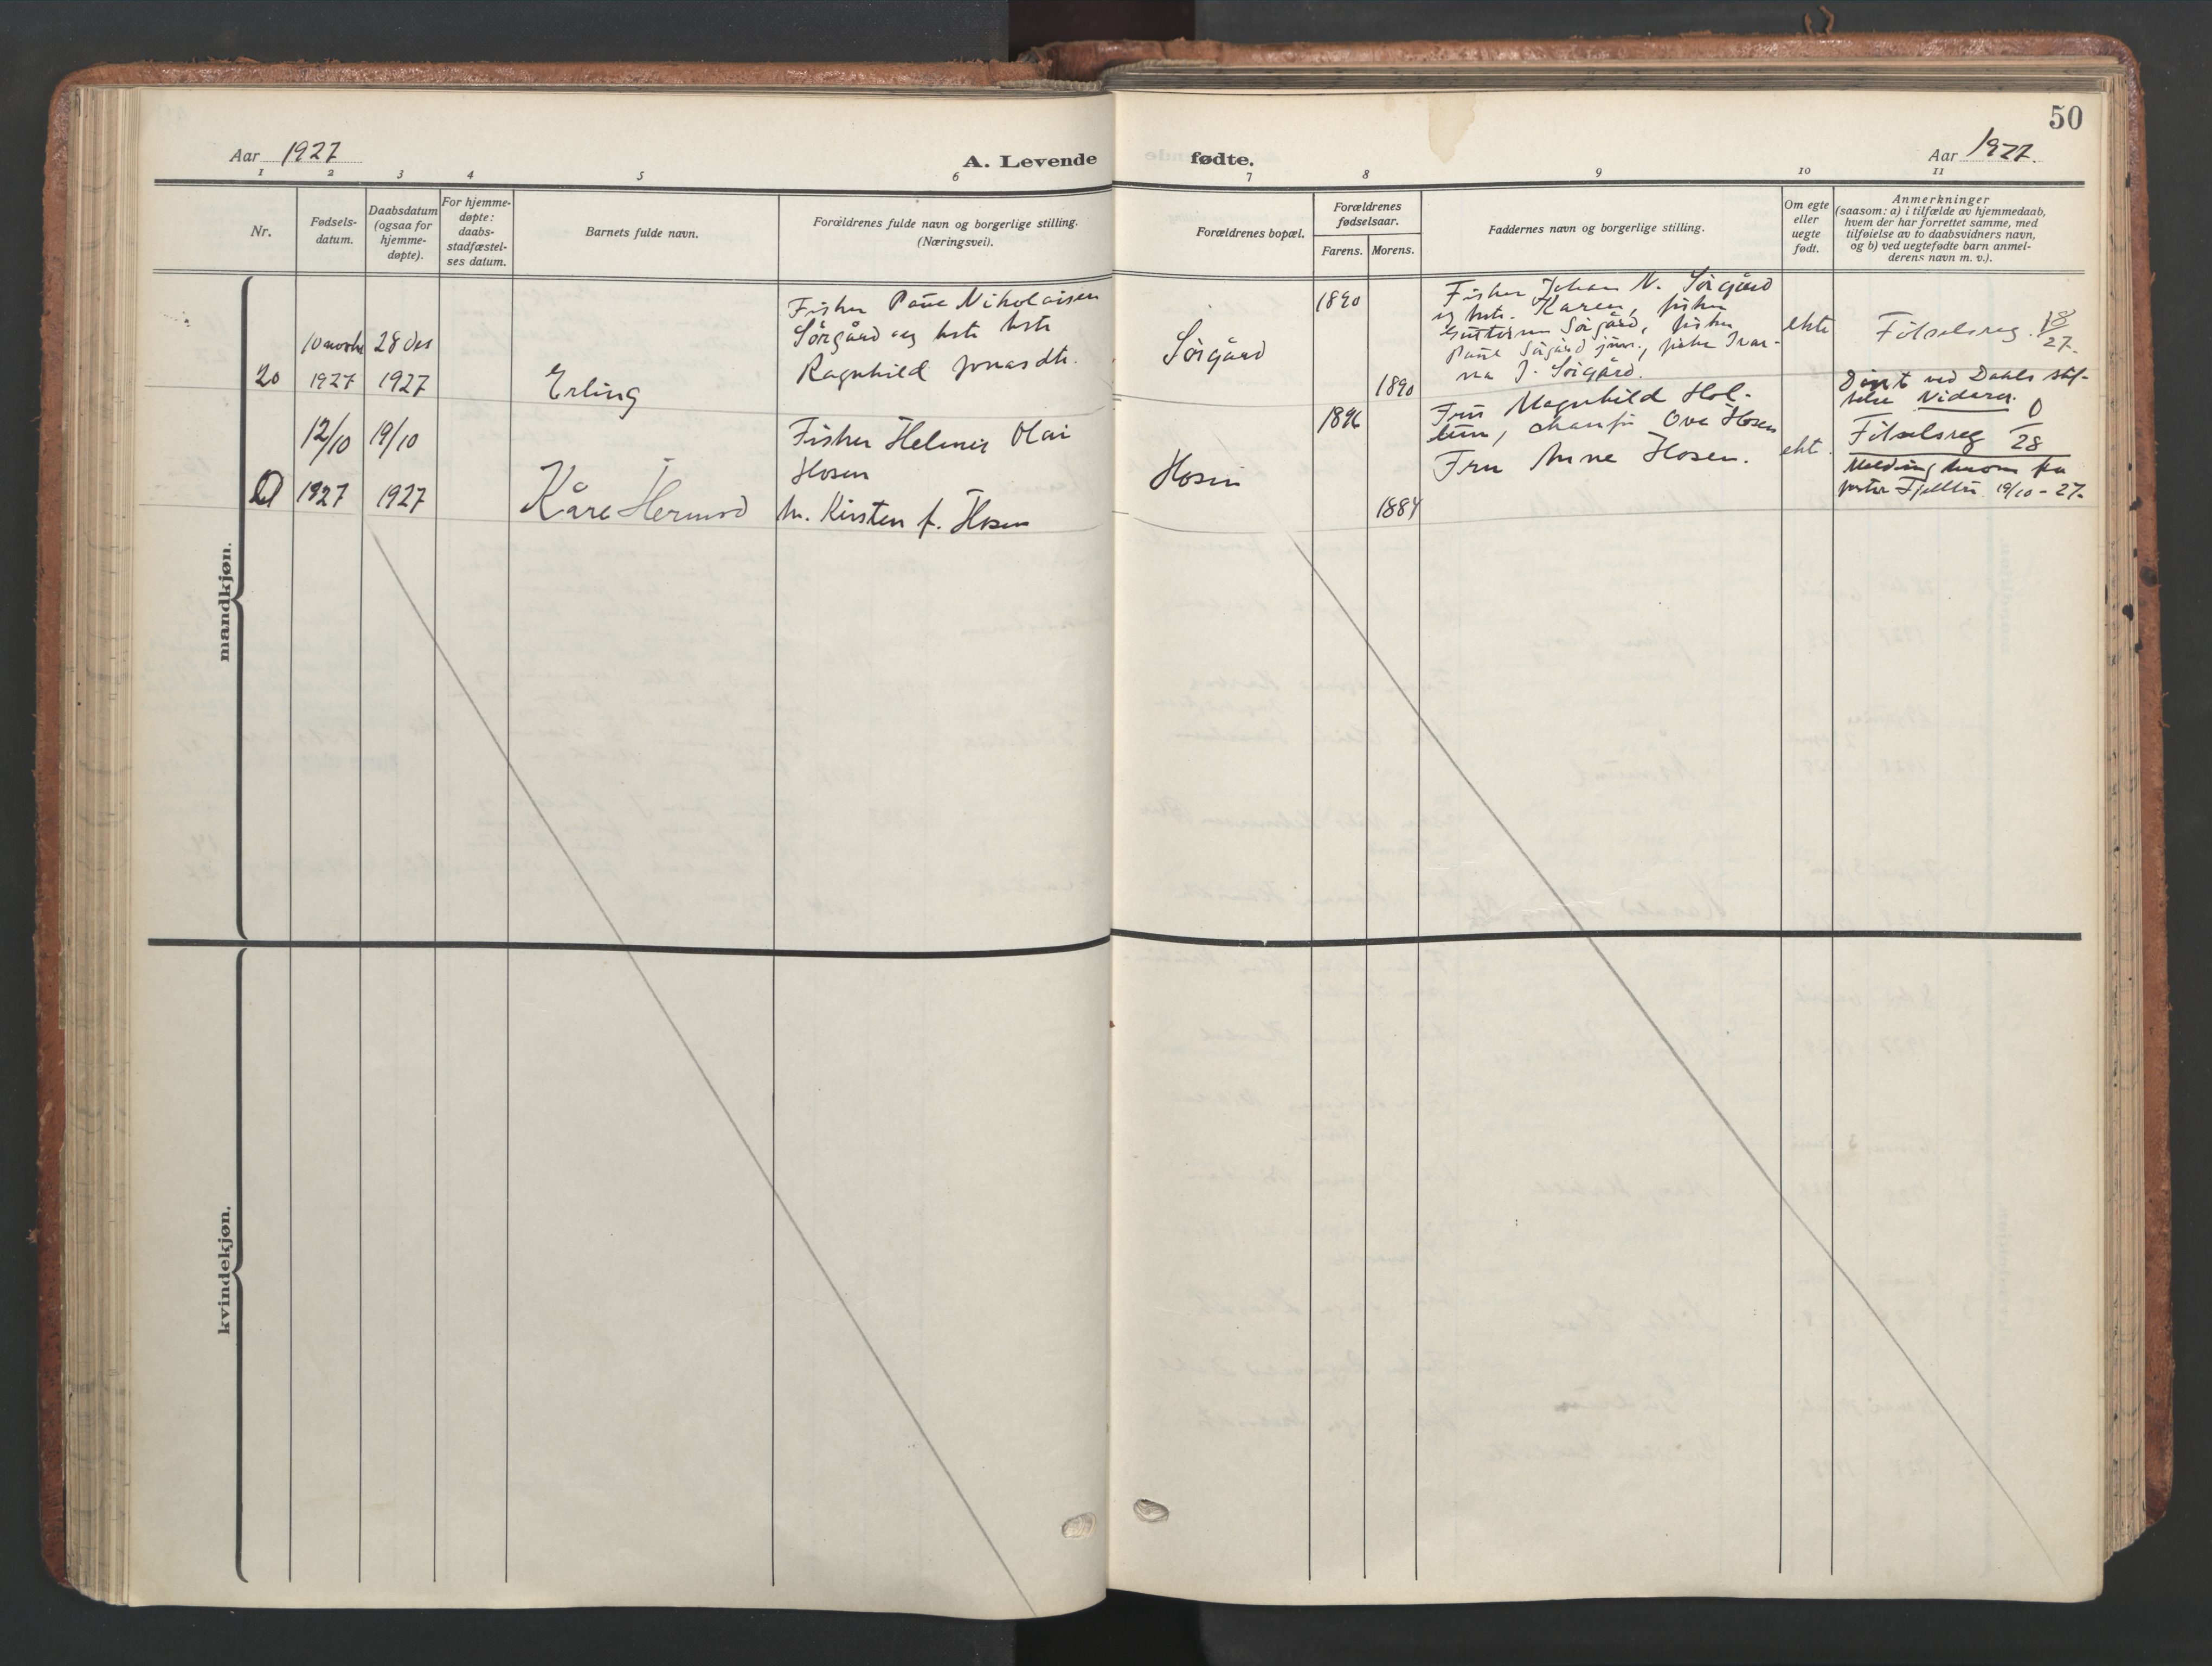 50
Aar 1927
A. Levende fødte.
Aar 1927.
1 2 3 4 5 6 7 8 9 10 11
Nr.
Fødsels-
datum.
Daabsdatum
(ogsaa for
hjemme-
døpte).
For hjemme-
døpte:
daabs-
stadfæstel-
ses datum.
Barnets fulde navn.
Forældrenes fulde navn og borgerlige stilling.
(Næringsvei).
Forældrenes bopæl.
Forældrenes
fødselsaar.
Farens. Morens.
Faddernes navn og borgerlige stilling.
Om egte
eller
uegte
født.
Anmerkninger
(saasom: a) i tilfælde av hjemmedaab,
hvem der har forrettet samme, med
tilføielse av to daabsvidners navn,
og b) ved uegtefødte barn anmel-
derens navn m. v.).
mandkjøn.
20
10 novbr
1927
28 des
1927
Erling
Fisker Paul Nikolaisen
Sørgård og hstr
Ragnhild Jonasdtr.
Sørgård
1890
1890
Fisker Johan N. Sørgård
og hstr. Karen, fisker
Guttorm Sørgård, fisker
Paul Sørgård jünr., 
J. Sørgård.
ekte
Fødselsreg. 18/27.
21
12/10
1927
19/10
1927
Kåre Hermod
Fisker Helmer Olai
Hosen
h. Kirsten f. Hosen
Hosen
1896
1884
Fru Magnhild Hol-
tun, chauffør Ove Hosen
Fru Anne Hosen.
ekt.
Døpt ved Dahls stif-
telse Nidaros.
Fødselsreg 0/28
Melding herom fra
pastor Fjelltu 19/10-27.
kvindekjøn.